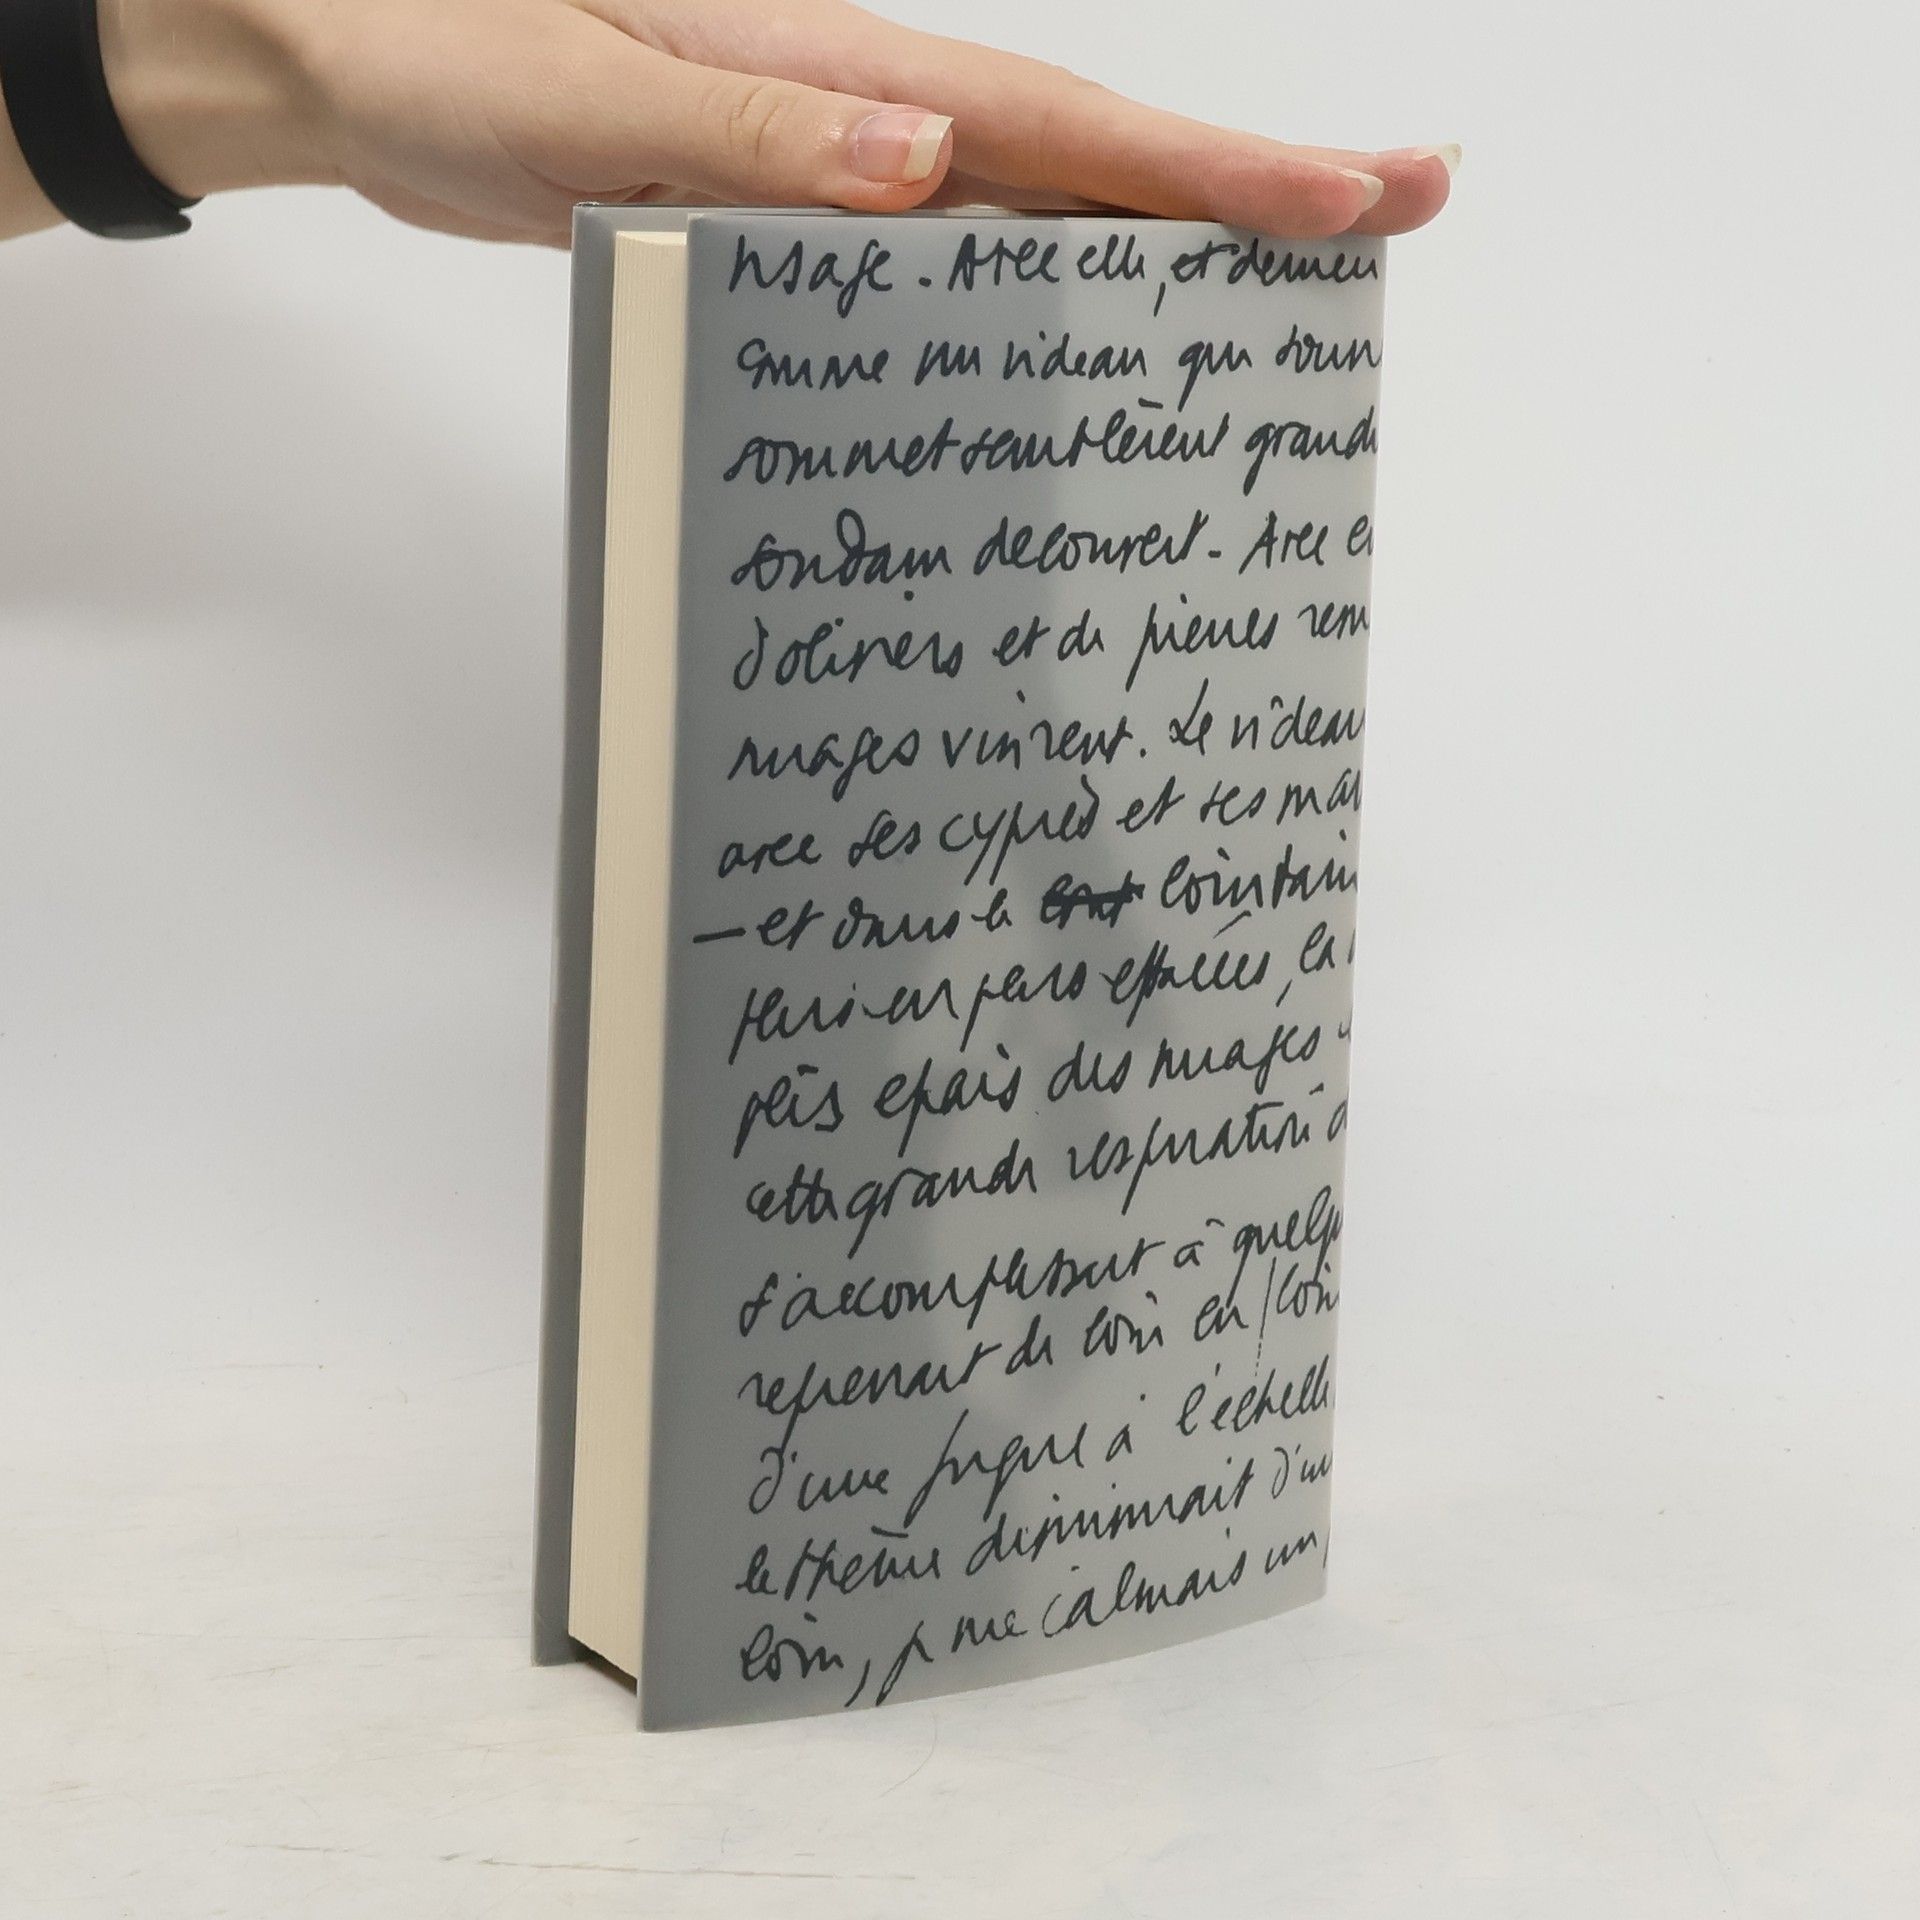 visage. Avec elle, et demeu
comme un rideau qui s'ouvr
sommet semblèrent grandi
soudain découvert. Avec el
d'oliviers et de pierres
nuages vinrent. Le rideau
avec ses cyprès et ses mai
— et dans le lointain
effacées, la
plis épais des nuages
cette grande respiration d
s'accomplissait à quelqu
reprenait de loin en loin
d'une fugue à l'échelle
le thème diminuait d'un
loin, je me calmais un